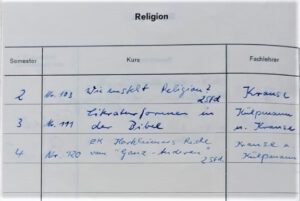 Religion
Semester Kurs Fachlehrer
2 Nr. 103 Wie entsteht Religion? 2 Std. Krause
3 Nr. 111 Literaturformen in der Bibel Külpmann u. Krause
4 Nr. 120 GK Horkheimers Rede von "Ganz-Anderen" 2 Std. Krause u. Külpmann